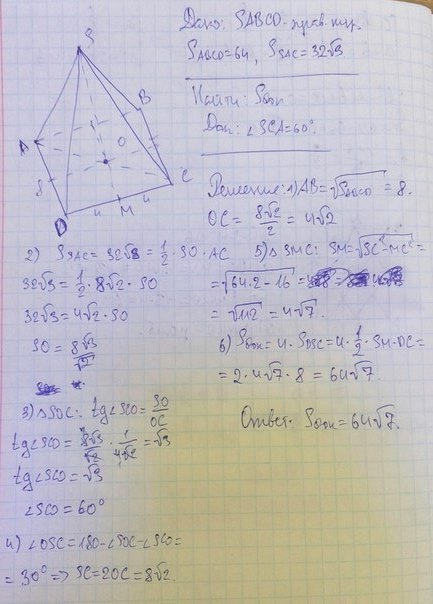 Дано: SABCD - прав. пир.
S_ABCD=64, S_SAC=32√3
Найти: Sбок
Док: ∠SCA=60°.
S
B
A
O
C
8
D
4
M
4
Решение: 1) AB=√S_ABCD = 8.
OC = 8√2/2 = 4√2
2) S_SAC = 32√3 = 1/2 · SO · AC
32√3 = 1/2 · 8√2 · SO
32√3 = 4√2 · SO
SO = 8√3/√2
3) △SOC: tg∠SCO = SO/OC
tg∠SCO = 8√3/√2 · 1/4√2 = √3
tg∠SCO = √3
∠SCO = 60°
4) ∠OSC = 180-∠SOC-∠SCO=
= 30° => SC=2OC=8√2.
5) △SMC: SM=√SC²-MC² =
= √64·2-16 =
= √112 = 4√7.
6) Sбок = 4·S_DSC = 4·1/2·SM·DC =
= 2·4√7·8 = 64√7.
Ответ: Sбок = 64√7.